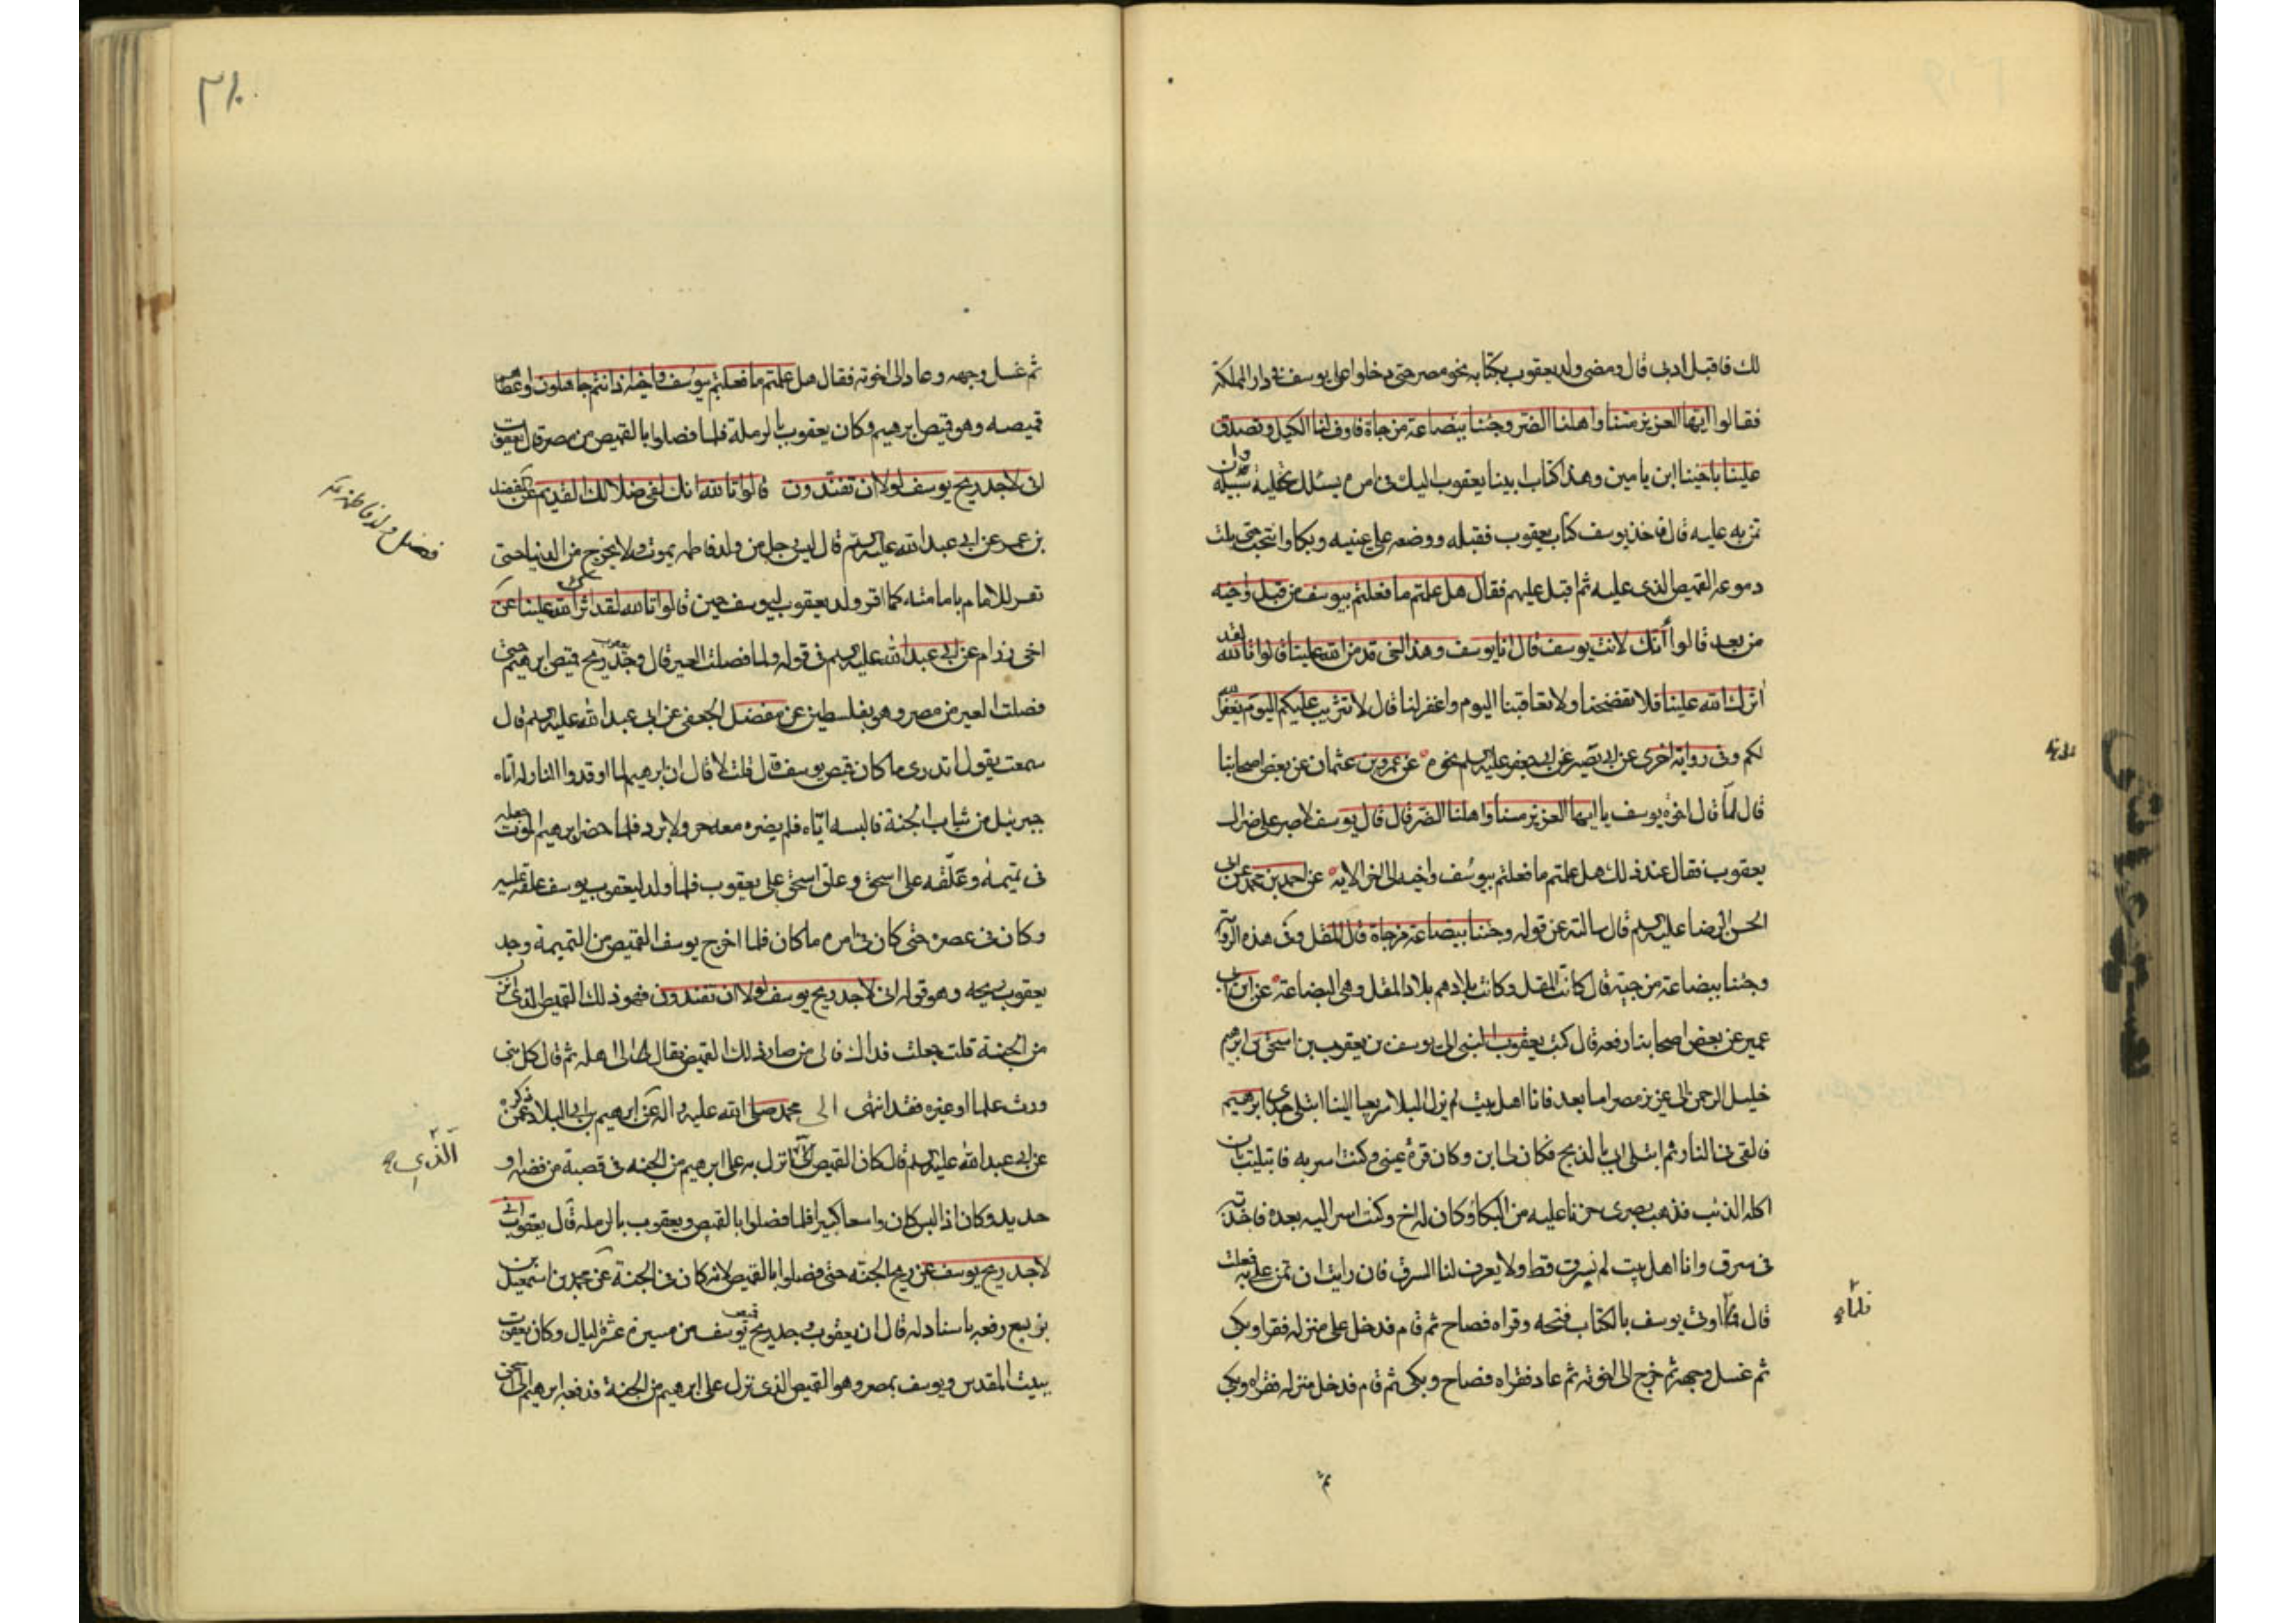 لك فاقبل ادبى قال ومضى ولد يعقوب بكتابه نحو مصر حتى دخلوا على يوسف فى دار المملكة
فقالوا ايها العزيز مسنا واهلنا الضر وجئنا ببضاعة مزجاة فاوف لنا الكيل وتصدق
علينا باخينا ابن يامين وهذا كتاب ابينا يعقوب اليك فى امره يسئلك تخلية سبيله وان
تمن به عليه قال فاخذ يوسف كتاب يعقوب فقبله ووضعه على عينيه وبكا وانتحب حتى بلت
دموعه القميص الذى عليه ثم اقبل عليهم فقال هل علمتم ما فعلتم بيوسف من قبل واخيه
من بعد قالوا أئنك لانت يوسف قال انا يوسف وهذا اخى قد من الله علينا قالوا تالله لقد
اثرك الله علينا فلا تفضحنا ولا تعاقبنا اليوم واغفر لنا قال لا تثريب عليكم اليوم يغفر الله
لكم وفى رواية اخرى عن ابى بصير عن ابى جعفر عليه السلم نحوه عن عمرو بن عثمان عن بعض اصحابنا
قال لما قال اخوة يوسف يا ايها العزيز مسنا واهلنا الضر قال قال يوسف لا صبر على ضر ال
يعقوب فقال عند ذلك هل علمتم ما فعلتم بيوسف واخيه الى اخر الاية عن احمد بن محمد عن ابى
الحسن الرضا عليه السلم قال سالته عن قوله وجئنا ببضاعة مزجاة قال المقل وفى هذه الرواية
وجئنا ببضاعة مزجية قال كانت المقل وكانت بلادهم بلاد المقل وهى البضاعة عن ابن ابى
عمير عن بعض اصحابنا رفعه قال كتب يعقوب النبى الى يوسف من يعقوب بن اسحق بن ابرهيم
خليل الرحمن الى عزيز مصر اما بعد فانا اهل بيت لم يزل البلا سريعا الينا ابتلى جدى ابرهيم
فالقى فى النار ثم ابتلى ابى بالذبح فكان لى ابن وكان قرة عينى وكنت اسر به فابتليت بان
اكله الذئب فذهب بصرى حزنا عليه من البكاء وكان له اخ وكنت اسر اليه بعده فاخذته
فى سرق وانا اهل بيت لم نسرق قط ولا يعرف لنا السرق فان رايت ان تمن على به فعلت
قال فلما اوتى يوسف بالكتاب فتحه وقراه فصاح ثم قام فدخل على منزله فقرا وبكى
ثم غسل وجهه ثم خرج الى اخوته ثم عاد فقراه فصاح وبكى ثم قام فدخل منزله فقراه وبكى
ثم
فلما
ثم غسل وجهه وعاد الى اخوته فقال هل علمتم ما فعلتم بيوسف واخيه اذ انتم جاهلون واعطاهم
قميصه وهو قميص ابرهيم وكان يعقوب بالرملة فلما فصلوا بالقميص من مصر قال يعقوب
انى لاجد ريح يوسف لولا ان تفندون قالوا تالله انك لفى ضلالك القديم عن المفضل
بن عمر عن ابى عبد الله عليه السلم قال ليس رجل من ولد فاطمه يموت ولا يخرج من الدنيا حتى
تقر للامام بامامته كما اقر ولد يعقوب ليوسف حين قالوا تالله لقد اثرك الله علينا عن
اخى رزام عن ابى عبد الله عليه السلم فى قوله ولما فصلت العير قال وجد يعقوب ريح قميص ابرهيم حتى
فصلت العير من مصر وهو بفلسطين عن مفضل الجعفى عن ابى عبد الله عليه السلم قال
سمعت يقول اتدرى ما كان قميص يوسف قال قلت لا قال ان ابرهيم لما اوقدوا النار له اتاه
جبرئيل من ثياب الجنة فالبسه اياه فلم يضره معه حر ولا برد فلما حضر ابرهيم الموت جعله
فى تميمة وعلقه على اسحق وعلق اسحق على يعقوب فلما ولد ليعقوب يوسف علقه عليه
وكان فى عصره حتى كان فى امره ما كان فلما اخرج يوسف القميص من التميمة وجد
يعقوب ريحه وهو قوله انى لاجد ريح يوسف لولا ان تفندون فهو ذلك القميص الذى انزل
من الجنة قلت جعلت فداك فالى من صار ذلك القميص فقال الى اهله ثم قال كل نبى
ورث علما او غيره فقد انتهى الى محمد صلى الله عليه واله عن ابرهيم بن ابى البلاد عمن ذكره
عن ابى عبد الله عليه السلم قال كان القميص انزل به على ابرهيم من الجنة فى قصبة من فضة او
حديد وكان اذا لبس كان واسعا كبيرا فلما فصلوا بالقميص ويعقوب بالرملة قال يعقوب انى
لاجد ريح يوسف عن ريح الجنة حتى فصلوا بالقميص لانه كان فى الجنة عن محمد بن اسمعيل بن
بزيع رفعه باسناد له قال ان يعقوب وجد ريح قميص يوسف من مسيرة عشرة ليال وكان يعقوب
ببيت المقدس ويوسف بمصر وهو القميص الذى نزل على ابرهيم من الجنة فدفعه ابرهيم الى اسحق
فضل ولد فاطمه
الذى